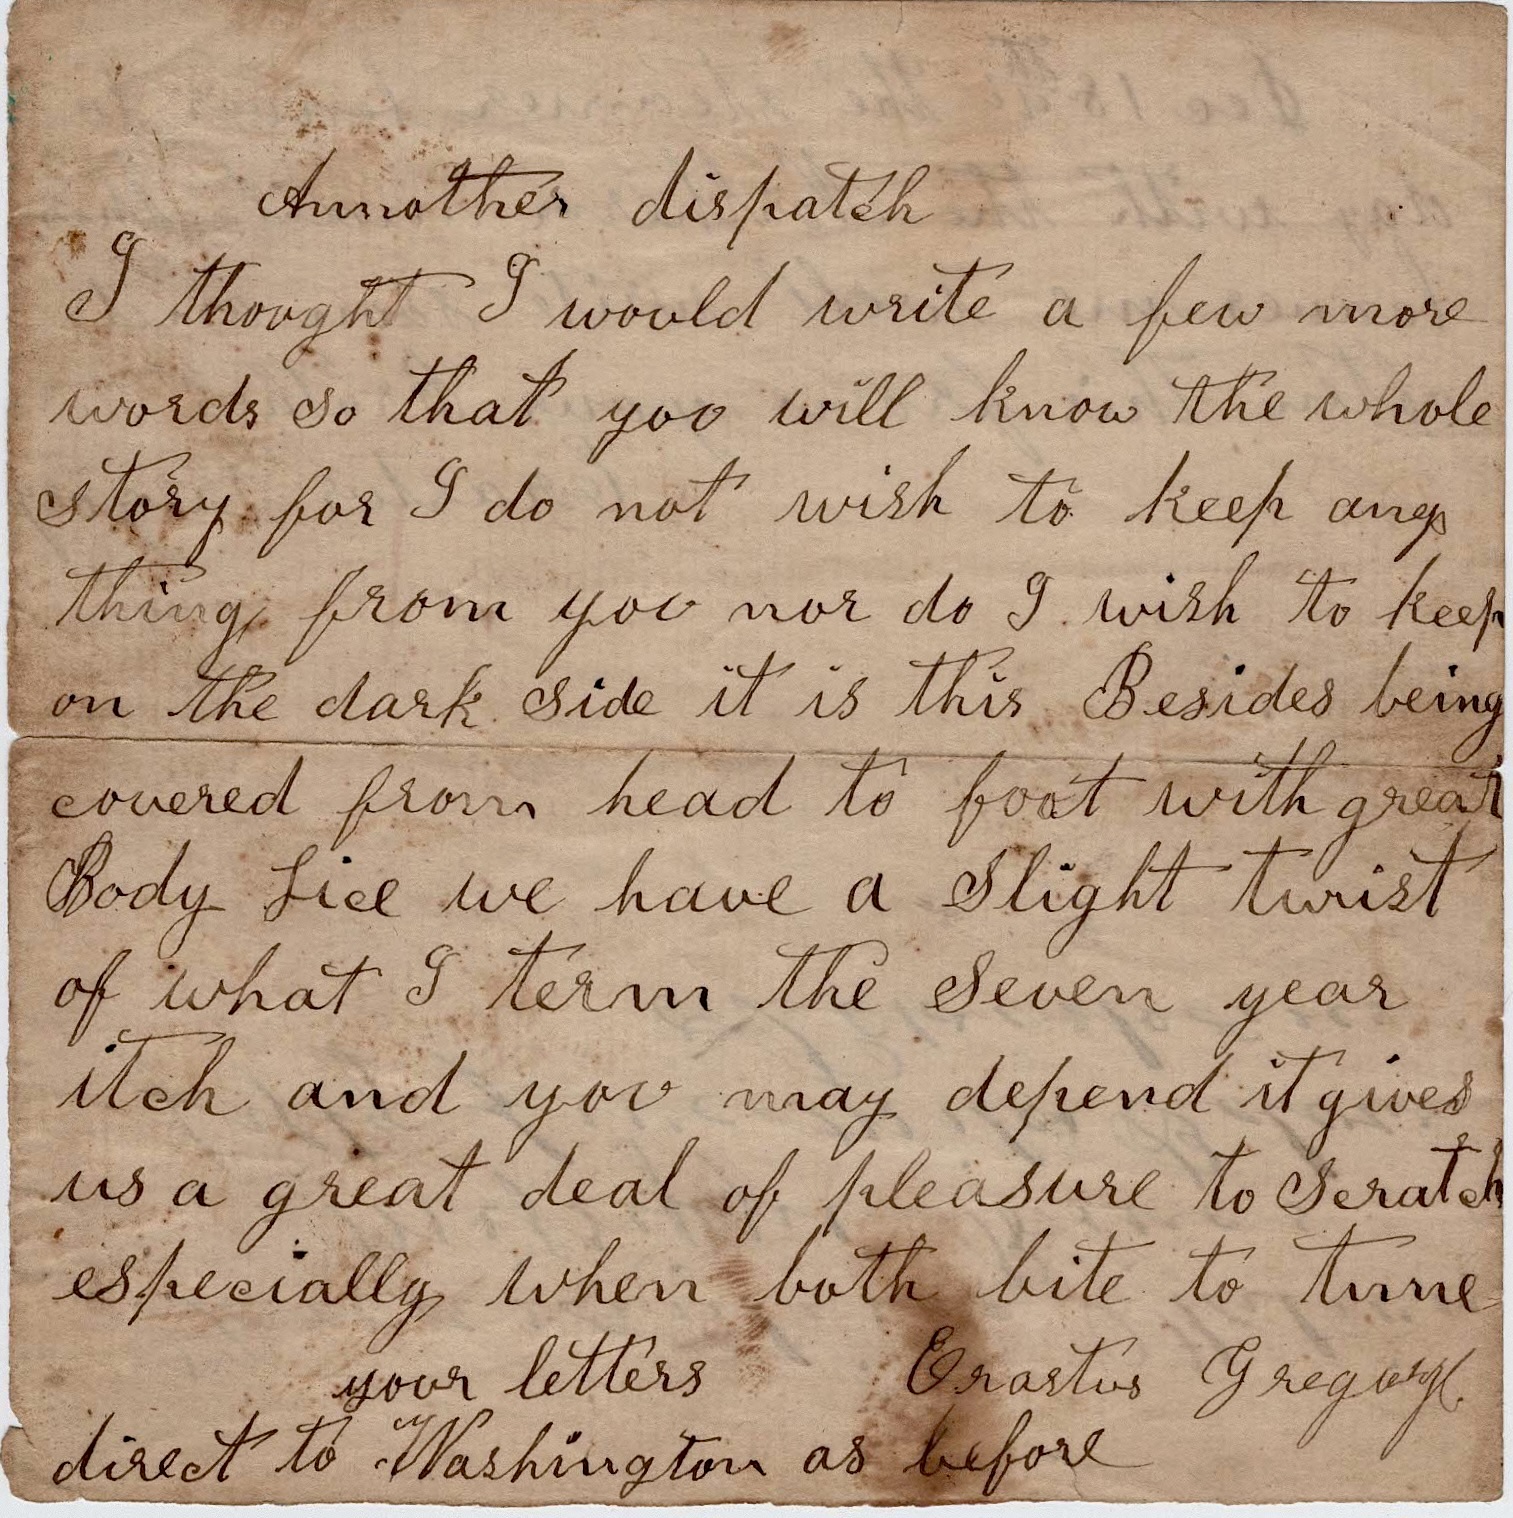 Annother dispatch
I thought I would write a few more
words so that you will know the whole
story for I do not wish to keep any
thing from you nor do I wish to keep
on the dark side it is this Besides being
covered from head to foot with great
Body Lice we have a slight twist
of what I term the seven year
itch and you may depend it gives
us a great deal of pleasure to scratch
especially when both bite to tune
your letters Erastus Gregory
direct to Washington as before